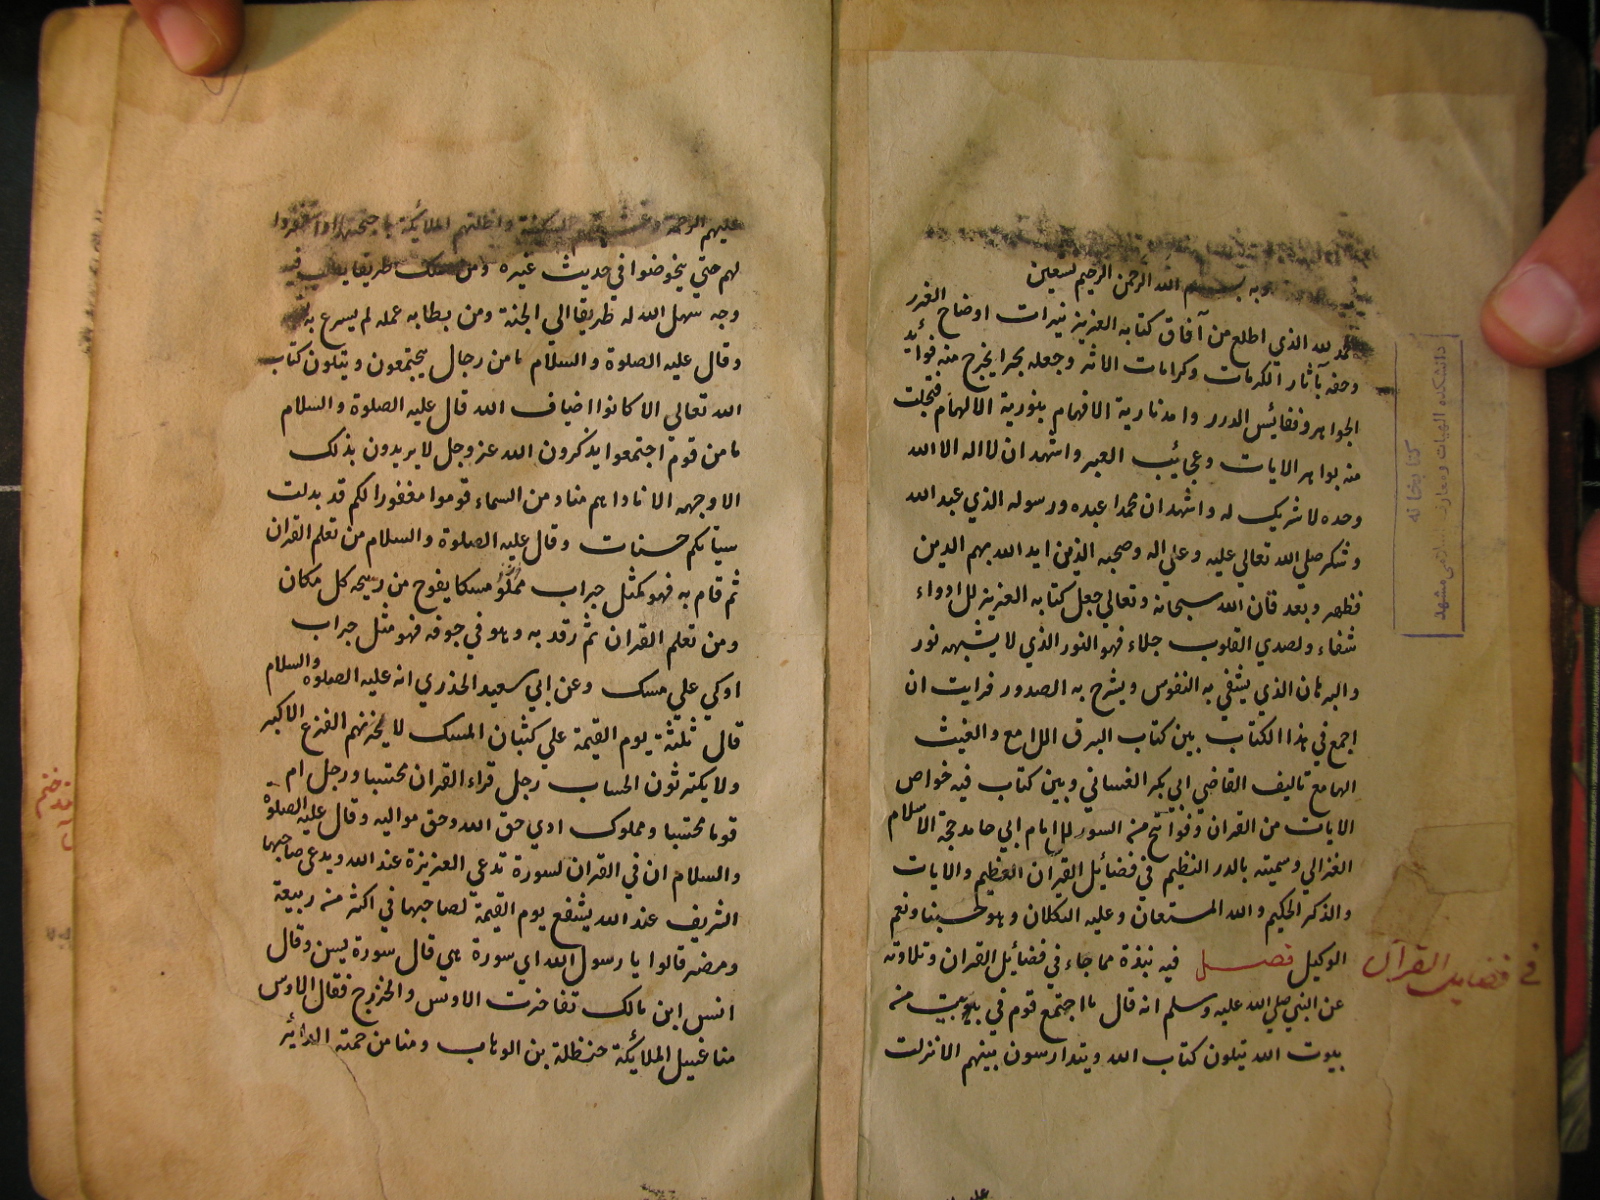 وبه بسم الله الرحمن الرحيم نستعين
الحمد لله الذي اطلع من آفاق كتابه العزيز نيرات اوضاح الغرر
وحفه بآثار المكرمات وكرامات الاثر وجعله بحرا يخرج منه فوائد
الجواهر ونفائيس الدرر وامد نارية الافهام بنورية الالهام فتجلت
منه بواهر الايات وعجائيب العبر واشهد ان لا اله الا الله
وحده لا شريك له واشهد ان محمدا عبده ورسوله الذي عبد الله
وشكر صلي الله تعالي عليه وعلي اله وصحبه الذين ايد الله بهم الدين
فظهر وبعد فان الله سبحانه وتعالي جعل كتابه العزيز للادواء
شفاء ولصدي القلوب جلاء فهو النور الذي لا يشبهه نور
والبرهان الذي يشفي به النفوس ويشرح به الصدور فرايت ان
اجمع في هذا الكتاب بين كتاب البرق اللامع والغيث
الهامع تاليف القاضي ابي بكر الغساني وبين كتاب فيه خواص
الايات من القران وفواتح منه السور للامام ابي حامد حجة الاسلام
الغزالي وسميته بالدر النظيم في فضائيل القرآن العظيم والايات
والذكر الحكيم والله المستعان وعليه التكلان وهو حسبنا ونعم
الوكيل فصل فيه نبذة مما جاء في فضائيل القران وتلاوته
في فضايل القرآن
عن النبي صلي الله عليه وسلم انه قال ما اجتمع قوم في بيت منه
بيوت الله يتلون كتاب الله ويتدارسون بينهم الا نزلت
كتابخانه
دانشكده الهيات ومعارف اسلامي مشهد
عليهم الرحمة وغشيتهم السكينة واظلتهم الملائكة باجنحتها واستغفروا
لهم حتي يخوضوا في حديث غيره ومن سلك طريقا فيه
وجه سهل الله له طريقا الي الجنة ومن بطا به عمله لم يسرع به
وقال عليه الصلوة والسلام ما من رجال يجتمعون ويتلون كتاب
الله تعالي الا كانوا اضياف الله قال عليه الصلوة والسلام
ما من قوم اجتمعوا يذكرون الله عز وجل لا يريدون بذلك
الا وجهه الا ناداهم مناد من السماء قوموا مغفورا لكم قد بدلت
سياتكم حسنات وقال عليه الصلوة والسلام من تعلم القران
ثم قام به فهو كمثل جراب مملوّ مسكا يفوح من ريحه كل مكان
ومن تعلم القران ثم رقد به وهو في جوفه فهو مثل جراب
اوكي علي مسك وعن ابي سعيد الخدري انه عليه الصلوة والسلام
قال ثلثة يوم القيمة علي كثبان المسك لا يحزنهم الفزع الاكبر
ولا يكترثون الحساب رجل قراء القران محتسبا ورجل ام
قوما محتسبا ومملوك ادي حق الله وحق مواليه وقال عليه الصلوة
والسلام ان في القران لسورة تدعي العزيزة عند الله ويدعي صاحبها
الشريف عند الله يشفع يوم القيمة لصاحبها في اكثر منه ربيعة
ومضر قالوا يا رسول الله اي سورة هي قال سورة يس وقال
انس ابن مالك تفاخرت الاوس والخزرج فقال الاوس
منا غسيل الملائيكة حنظلة بن الوهاب ومنا من حمته الدائر